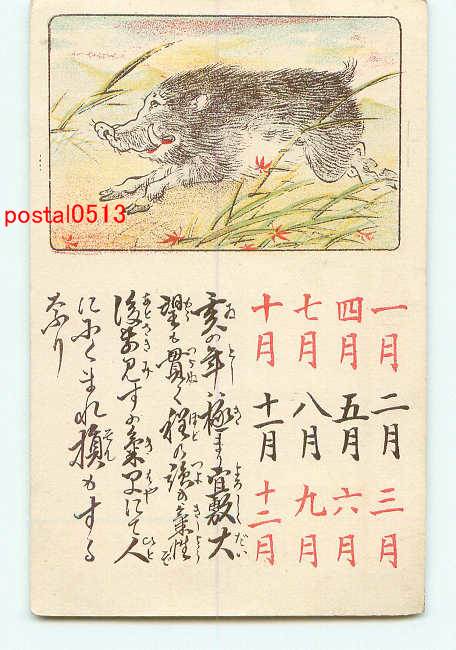 postal0513
一月 二月 三月
四月 五月 六月
七月 八月 九月
十月 十一月 十二月
亥の年極まり宜敷大
望も貫く程の強き氣性
後前見ずの氣早にて人
にくまれ損もする